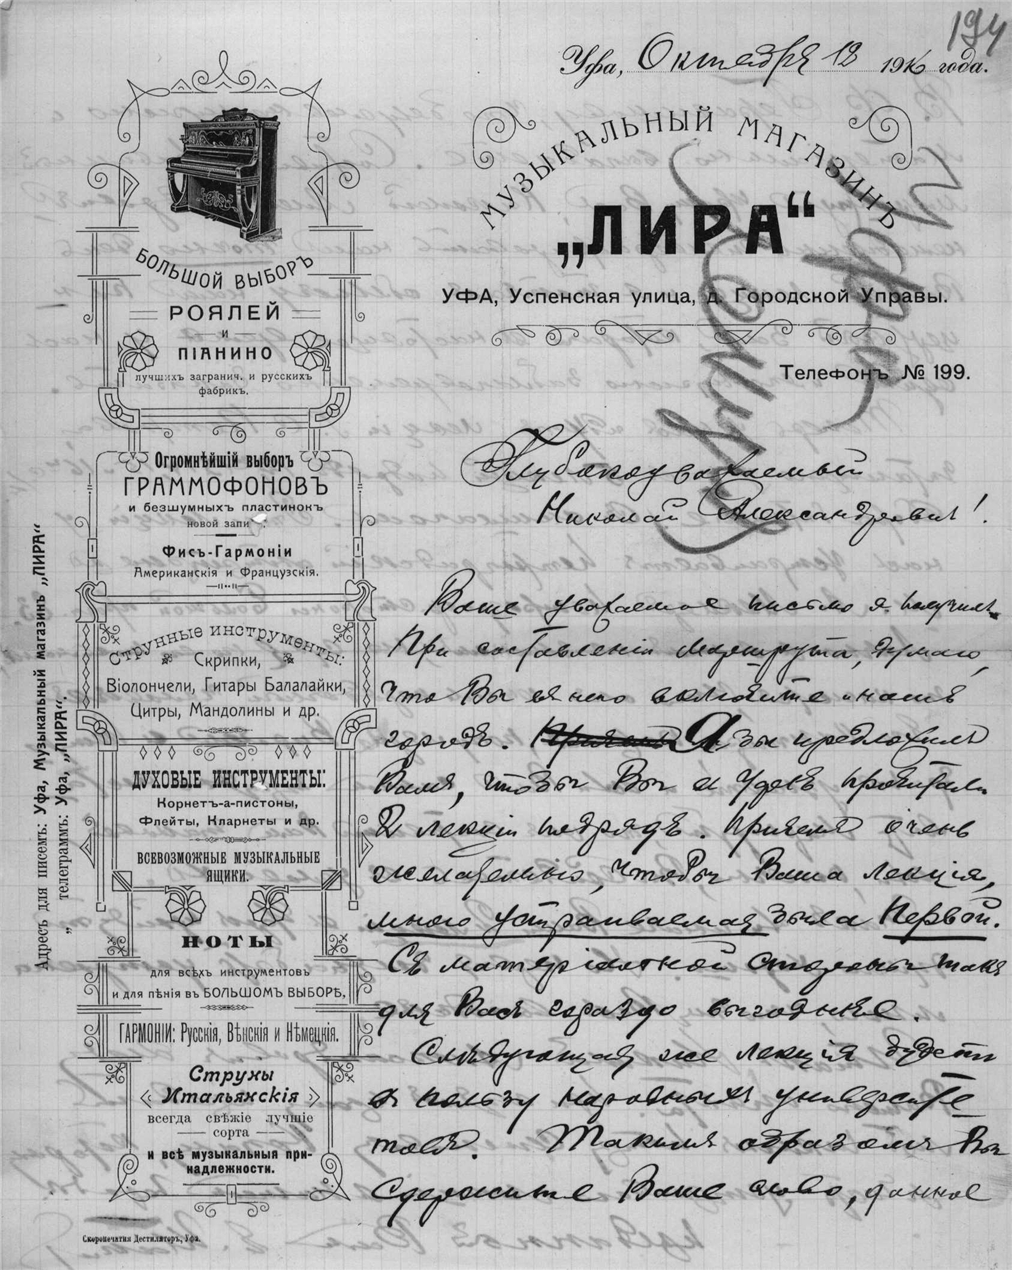 194
Уфа, Октября 12 1916 года.
МУЗЫКАЛЬНЫЙ МАГАЗИНЪ
„ЛИРА“
УФА, Успенская улица, д. Городской Управы.
Телефонъ № 199.
Уфа
БОЛЬШОЙ ВЫБОРЪ
РОЯЛЕЙ
и
ПІАНИНО
лучшихъ загранич. и русскихъ
фабрик.
Огромнѣйшій выборъ
ГРАММОФОНОВЪ
и безшумныхъ пластинокъ
новой запи
Фисъ-Гармоніи
Американскія и Французскія.
Струнные инструменты:
Скрипки,
Віолончели, Гитары Балалайки,
Цитры, Мандолины и др.
ДУХОВЫЕ ИНСТРУМЕНТЫ:
Корнетъ-а-пистоны,
Флейты, Кларнеты и др.
ВСЕВОЗМОЖНЫЕ МУЗЫКАЛЬНЫЕ
ЯЩИКИ.
НОТЫ
для всѣхъ инструментовъ
и для пѣнія въ БОЛЬШОМЪ ВЫБОРѢ,
ГАРМОНІИ: Русскія, Вѣнскія и Нѣмецкія.
Струны
Итальянскія
всегда свѣжіе лучшіе
сорта
и всѣ музыкальныя при-
надлежности.
Скоропечатня Дестилаторъ, Уфа.
Адресъ для писемъ: Уфа, Музыкальный магазинъ „ЛИРА“
„ телеграммъ: Уфа, „ЛИРА“.
Глубокоуважаемый
Николай Александрович!
Ваше уважаемое письмо я получилъ.
При составленіи маршрута, думаю,
что Вы в него включите и нашъ
городъ. Я бы предложилъ
Вамъ, чтобы Вы и здесь прочитали
2 лекціи подрядъ. Причемъ очень
желательно, чтобы Ваша лекція,
мною устраиваемая была Первой.
Съ матеріальной стороны такъ
для Васъ гораздо выгоднѣе.
Слѣдующая же лекція будетъ
в пользу народныхъ университе
товъ. Такимъ образомъ Вы
сдержите Ваше слово, данное